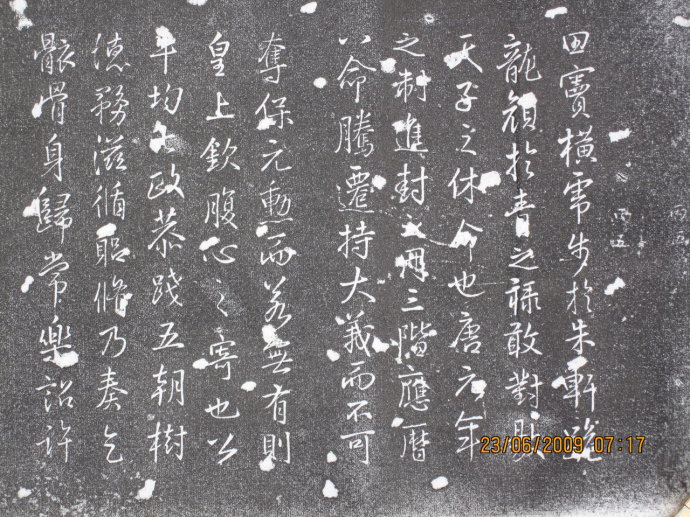 丙五
丙五
田竇橫步於朱軒
龍顏於青之祿敢對
天子之休命也唐元年
之制進封三階應曆
八命騰遷持大義而不可
奪保元勳而若無有則
皇上欽腹心之寄也公
平均政恭踐五朝樹
德務滋循脩乃奏乞
骸骨身歸常樂詔許
23/06/2009 07:17